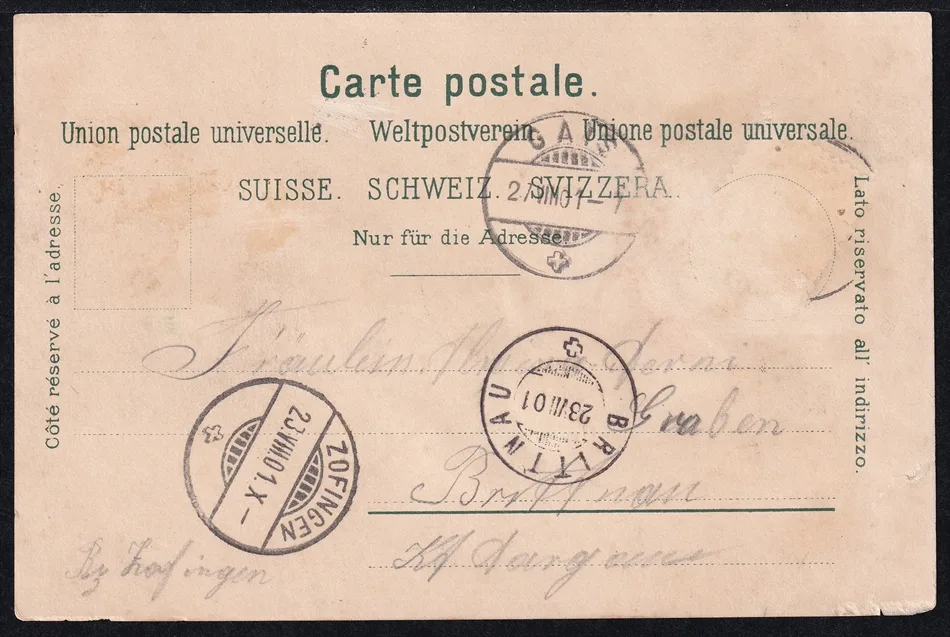 Carte postale.
Union postale universelle. Weltpostverein. Unione postale universale.
SUISSE. SCHWEIZ. SVIZZERA.
Nur für die Adresse
Côté réservé à l'adresse.
Lato riservato all' indirizzo.
GAIS
Fräulein
Graben
Brittnau
Kt Aargau
Bz Zofingen
BRITTNAU
23 VIII 01
ZOFINGEN
23.VIII.01.X-